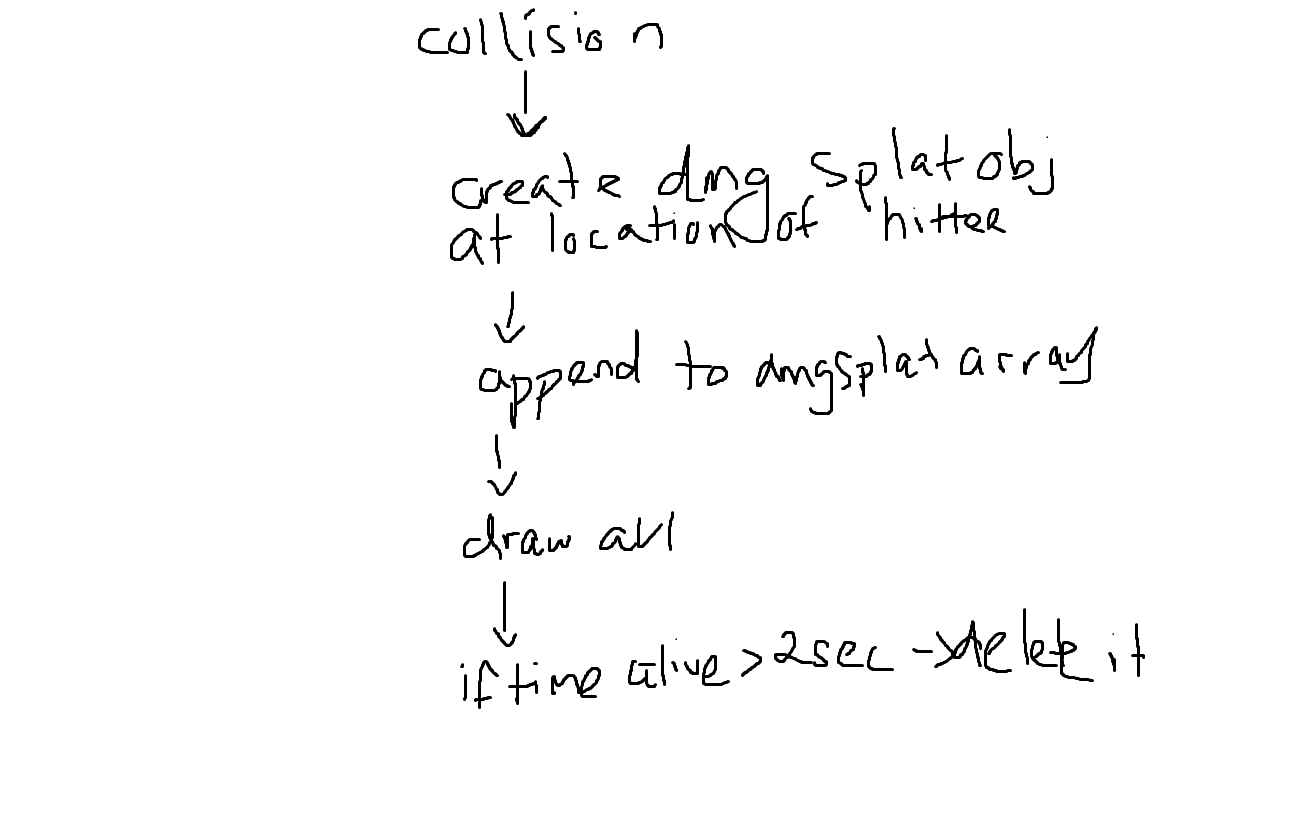 collision
create dmg splat obj
at location of hitter
append to dmgsplat array
draw all
if time alive > 2sec -> delete it